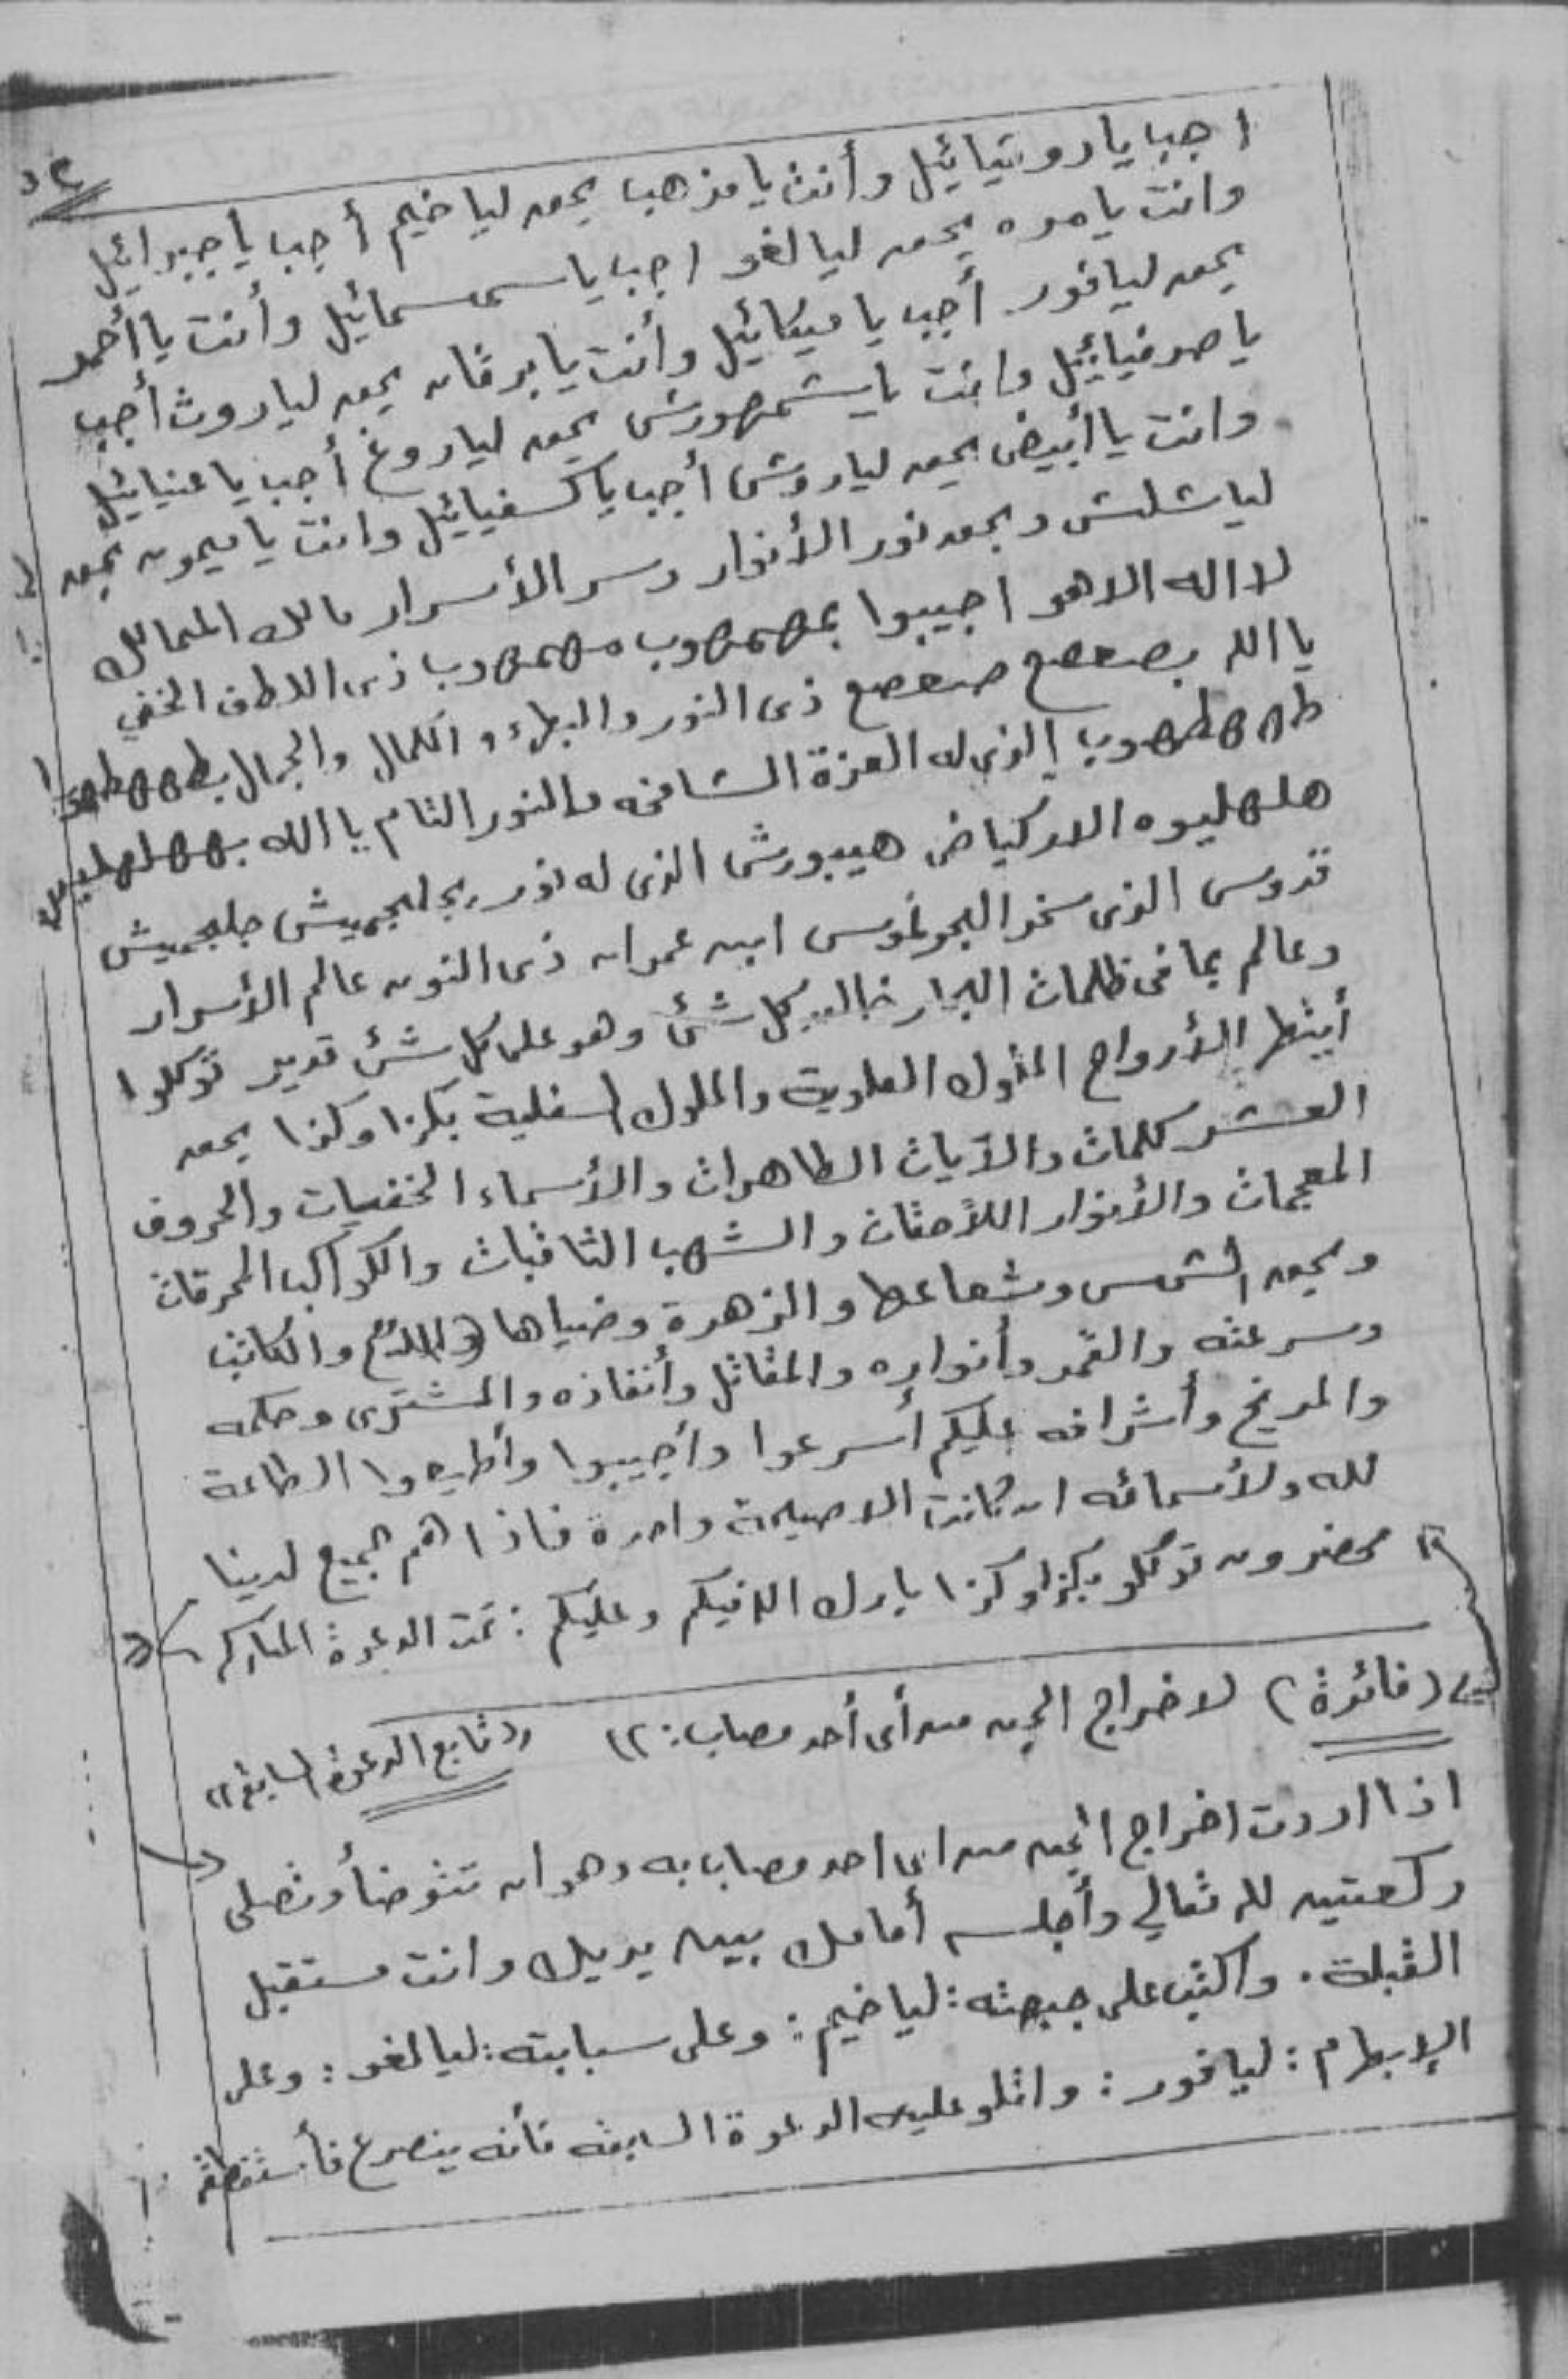 ٥٤
اجب يا روقيائيل وأنت يا مذهب بحق لياخيم أجب يا جبرائيل
وانت يا مره بحق ليالغو اجب يا سمسمائيل وأنت يا أحمر
بحق ليافور أجب يا ميكائيل وأنت يا برقان بحق لياروث أجب
يا صرفيائيل وانت يا شمهورش بحق لياروغ أجب يا عنيائيل
وانت يا أبيض بحق لياروش أجب يا كسفيائيل وانت يا ميمون بحق
لياشلش وبحق نور الأنوار وسر الأسرار مالك الممالك
لا اله الا هو اجيبوا بمهمهوب مهمهوب ذى اللطف الخفي
يا الله بصعصع صعصع ذى النور والبهاء والكمال والجمال بطهطهوب
طهطهوب الذى له العزة الشامخه والنور التام يا الله
الذى له نور بجلجميش جلجميش
قدوس الذى سخر البحر لموسى ابن عمران ذى النون عالم الأسرار
وعالم بما فى ظلمات البحار خالق كل شئ وهو على كل شئ قدير توكلوا
أيتها الأرواح الملوك العلوية والملوك السفلية بكذا وكذا بحق
العشر كلمات والآيات الطاهرات والأسماء الخفيات والحروف
المعجمات والأنوار اللامعات والشهب الثاقبات والكواكب المحرقات
وبحق الشمس وشعاعها والزهرة وضياها والكاتب
وسرعته والقمر وأنواره والمقاتل وأنفاذه والمشترى وحكمه
والمريخ وأشرافه عليكم أسرعوا وأجيبوا وأطيعوا الطاعة
لله ولأسمائه ان كانت الا صيحة واحدة فاذا هم جميع لدينا
محضرون توكلو بكذا وكذا بارك الله فيكم وعليكم : تمت الدعوة المباركه
(فائدة) لاخراج الجن من أى أحد مصاب :
((تابع الدعوة السابقه))
اذا اردت اخراج الجن من اى احد مصاب به وهو ان تتوضأ وتصلى
ركعتين لله تعالي وأجلسه أمامك بين يديك وانت مستقبل
القبلة . واكتب على جبهته : لياخيم : وعلى سبابته : ليالغو : وعلى
الإبهام : ليافور : واتلو عليه الدعوة السابقه فأنه ينصرع فأستنطقه